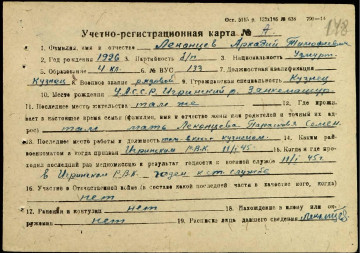 Ост. 5155 р. 125х148 № 636 200—11
148
Учетно-регистрационная карта № А
1. Фамилия, имя и отчество Леканцев Аркадий Тимофеевич
2. Год рождения 1926 3. Партийность б/п 3. Национальность Удмурт.
5. Образование 4 кл. 6. № ВУС 133 7. Должностная квалификация
Кузнец 8. Военное звание рядовой 9. Гражданская специальность Кузнец
10. Место рождения УАССР, Игринский р.
11. Последнее место жительства там же 12. Где прожи-
вает в настоящее время семья (фамилия, имя и отчество жены или родителей и точный их ад-
рес) там мать Леканцева Семен.
13. Последнее место работы и должность кузнецом 14. Каким рай-
военкоматом и когда призван Игринским РВК 11/I 45 г. 15. Когда и где про-
ходил последний раз медкомиссию и результат годности к военной службе 11/I 45 г.
в Игринском РВК годен к ст. службе
16. Участие в Отечественной войне (в составе какой последней части и в качестве кого, когда)
нет
17. Ранения и контузии нет 18. Нахождение в плену или ок-
ружении нет 19. Расписка лица давшего сведения Леканцев